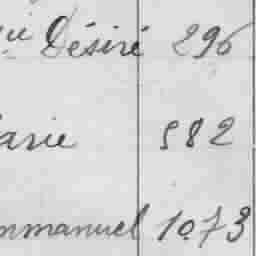 ie Désiré 296
arie 582
mmanuel 1073